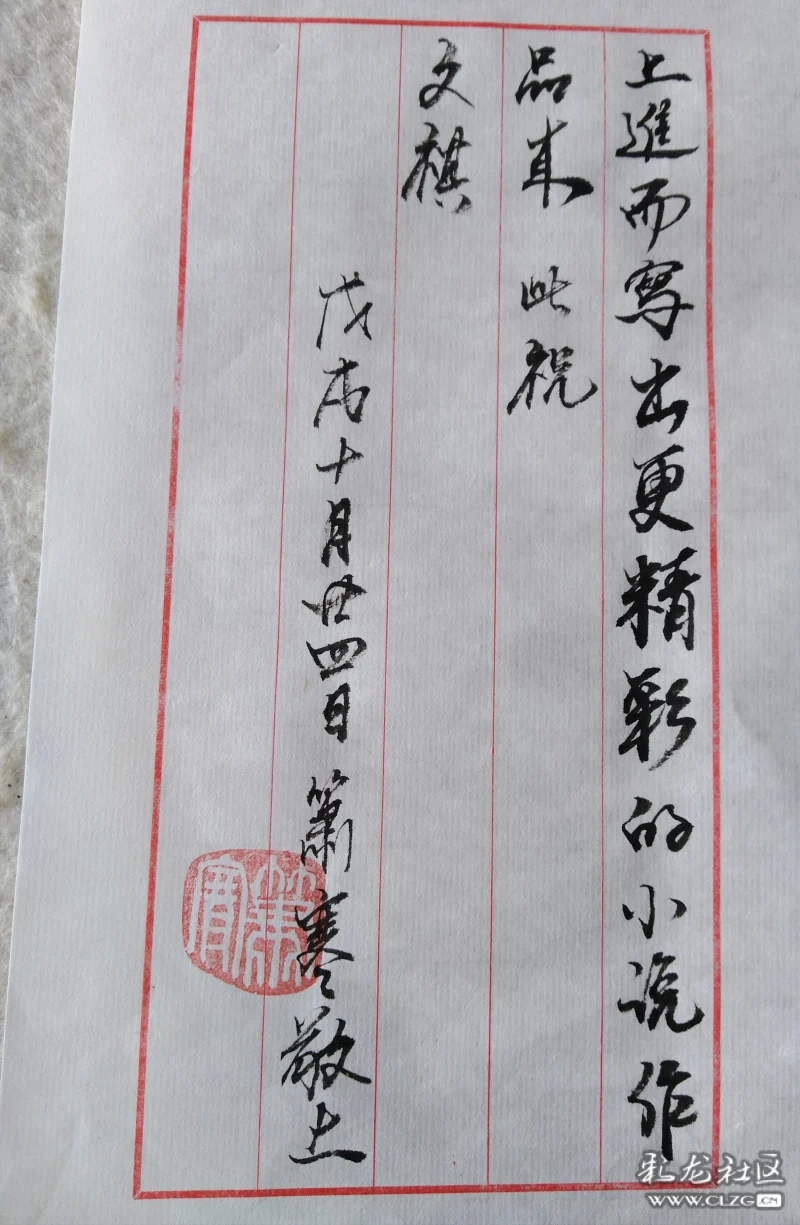 上進而寫出更精彩的小说作
品来 此祝
文祺
戊戌十月廿四日 簫寒敬上
彩龙社区
WWW.CLZG.CN